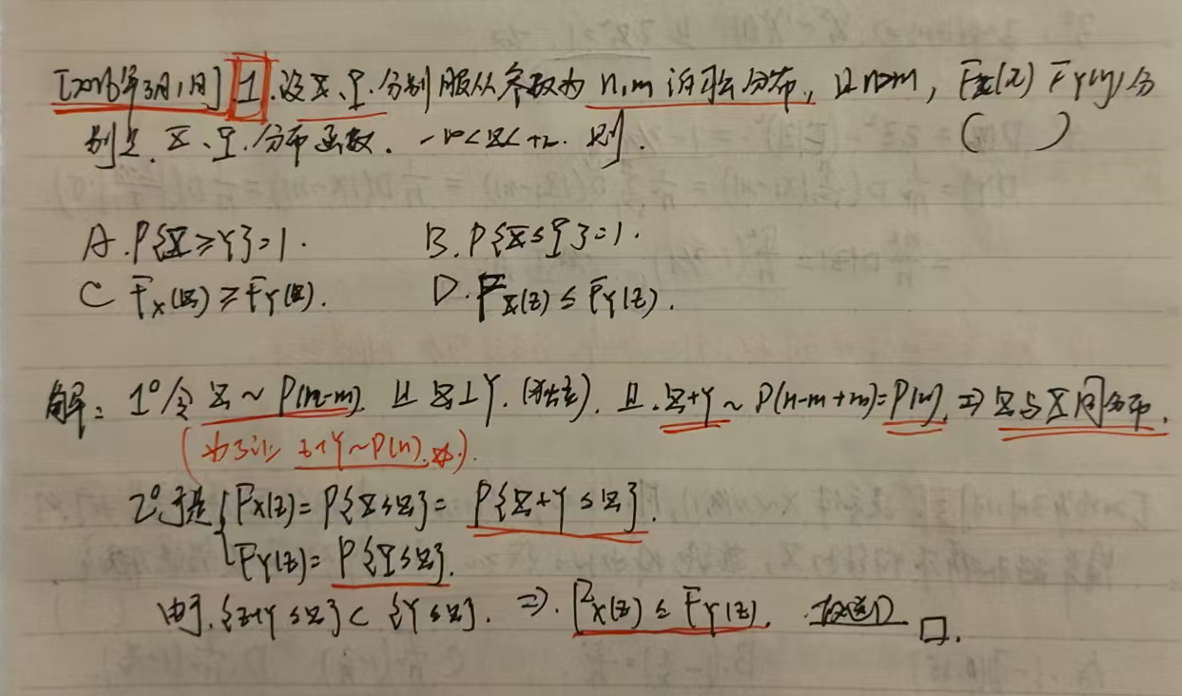 [2026年3月1日] 1. 设X、Y分别服从参数为 n,m 泊松分布, 且n>m, Fx(z) FY(y) 分
别是 X、Y 分布函数. -∞<z<+∞. 则. ( )
A. P{X≥Y}=1. B. P{X≤Y}=1.
C Fx(z)≥FY(z). D. Fx(z)≤FY(z).
解: 1° 令 Z~P(n-m) 且 Z⊥Y. (独立). 且. Z+Y~P(n-m+m)=P(n). ⇒ Z与X同分布.
(为了让 Z+Y~P(n).☆).
2° 于是 { Fx(z)=P{X≤z}=P{Z+Y≤z}.
FY(z)=P{Y≤z}.
由于. {Z+Y≤z}⊂{Y≤z}. ⇒. Fx(z)≤FY(z). 故选D □.